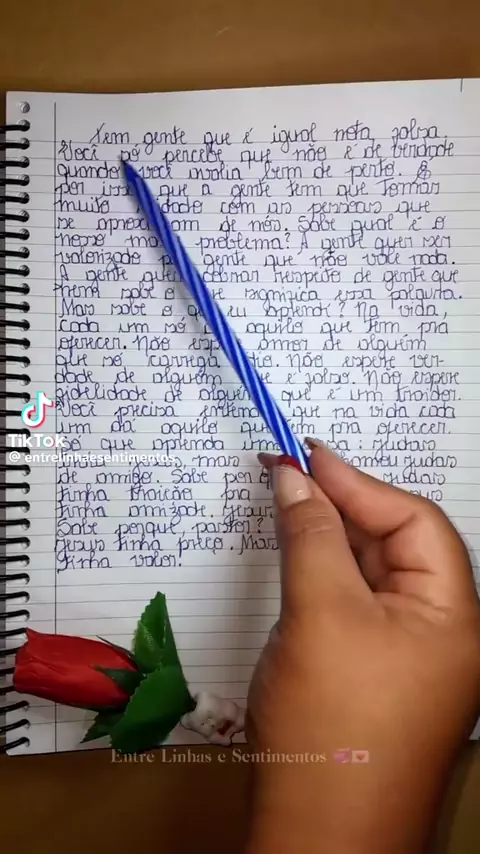 Tem gente que é igual nota falsa.
Você só percebe que não é de verdade
quando você avalia bem de perto. E
por isso que a gente tem que tomar
muito dado com as pessoas que
se aproximam de nós. Sabe qual é o
nosso problema? A gente quer ser
valorizado por gente que não vale nada.
A gente quer cobrar respeito de gente que
nem sabe o que significa essa palavra.
Mas sabe o que eu aprendi? Na vida,
cada um só dá aquilo que tem pra
oferecer. Não espere amor de alguém
que só carrega ódio. Não espere ver-
dade de alguém que é falso. Não espere
fidelidade de alguém que é um traidor.
Você precisa entender que na vida cada
um dá aquilo que tem pra oferecer.
Só que aprenda uma coisa: Judas
Jesus, mas chamou Judas
de amigo. Sabe por que Judas
tinha traição pra
tinha amizade. Jesus
Sabe porque, pastor?
Jesus tinha preço. Mas
tinha valor.
TikTok
@entrelinhaesentimentos
Entre Linhas e Sentimentos